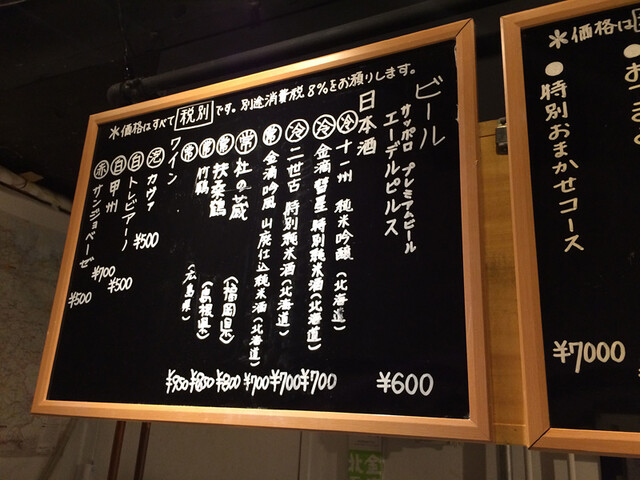 ※価格はすべて税別です。別途消費税8%をお預りします。
ビール
サッポロ プレミアムビール
エーデルピルス ¥600
日本酒
冷 十一州 純米吟醸(北海道)
冷 金滴彗星 特別純米酒(北海道)
冷 二世古 特別純米酒(北海道)
常 金滴吟風 山廃仕込純米酒(北海道)
常 杜の蔵 (福岡県)
常 扶桑鶴 (島根県)
常 竹鶴 (広島県)
¥950 ¥800 ¥800 ¥700 ¥700 ¥700
ワイン
泡 カヴァ ¥500
白 トレビアーノ ¥500
白 甲州 ¥700
赤 サンジョベーゼ ¥500
※価格は
●特別おまかせコース ¥7000